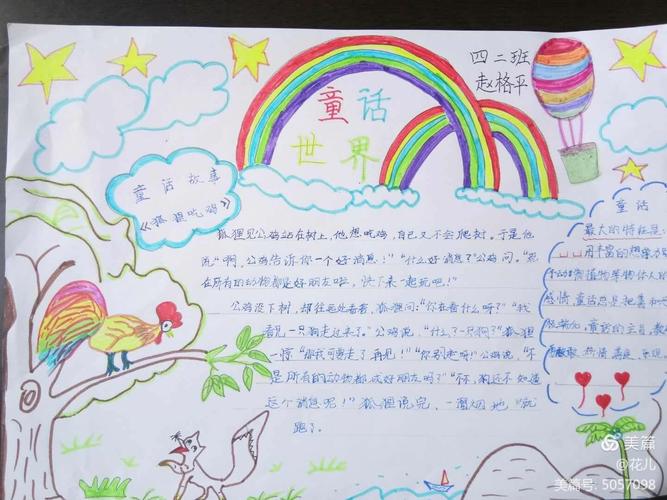 四二班
赵格平
童话
世界
童话故事
《狐狸吃鸡》
狐狸见公鸡站在树上，他想吃鸡，自己又不会爬树，于是他
说“啊，公鸡告诉你一个好消息！”“什么好消息？”公鸡问，“现
在所有的动物都是好朋友啦，快下来一起玩吧！”
公鸡没下树，却往远处看看，狐狸问：“你在看什么呀？”“我
看见一只狗走过来了。”公鸡说，“什么？一只狗？”狐狸
一惊“那我可要走了再见！”“你别走呀！”公鸡说，“不
是所有的动物都成好朋友吗？”“不，狗还不知道
这个消息呢！”狐狸说完，一溜烟地
跑了。
童话
最大的特征是：
用丰富的想象力
动植物等物件人的
感情，童话总是把真和
美
美篇
@花儿
美篇号: 5057098